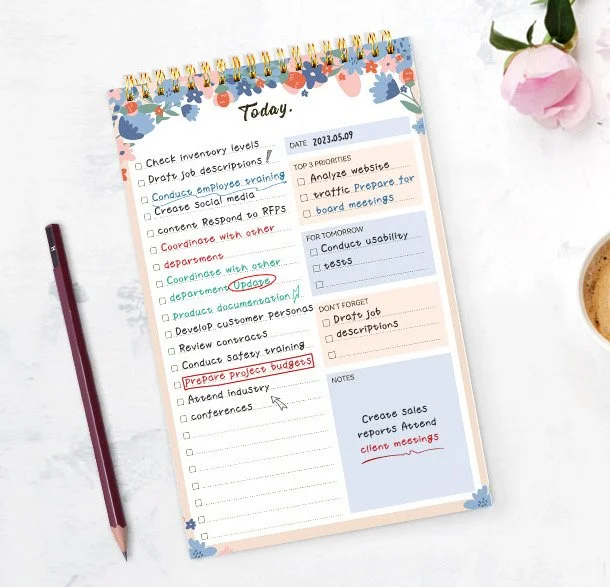 Today.
Check inventory levels
Draft job descriptions!
Conduct employee training
Create social media
content Respond to RFPs
Coordinate with other
department
Coordinate with other
department Update
product documentation
Develop customer personas
Review contracts
Conduct safety training
Prepare project budgets
Attend industry
conferences
DATE 2023.05.09
TOP 3 PRIORITIES
Analyze website
traffic Prepare for
board meetings
FOR TOMORROW
Conduct usability
tests
DON'T FORGET
Draft job
descriptions
NOTES
Create sales
reports Attend
client meetings